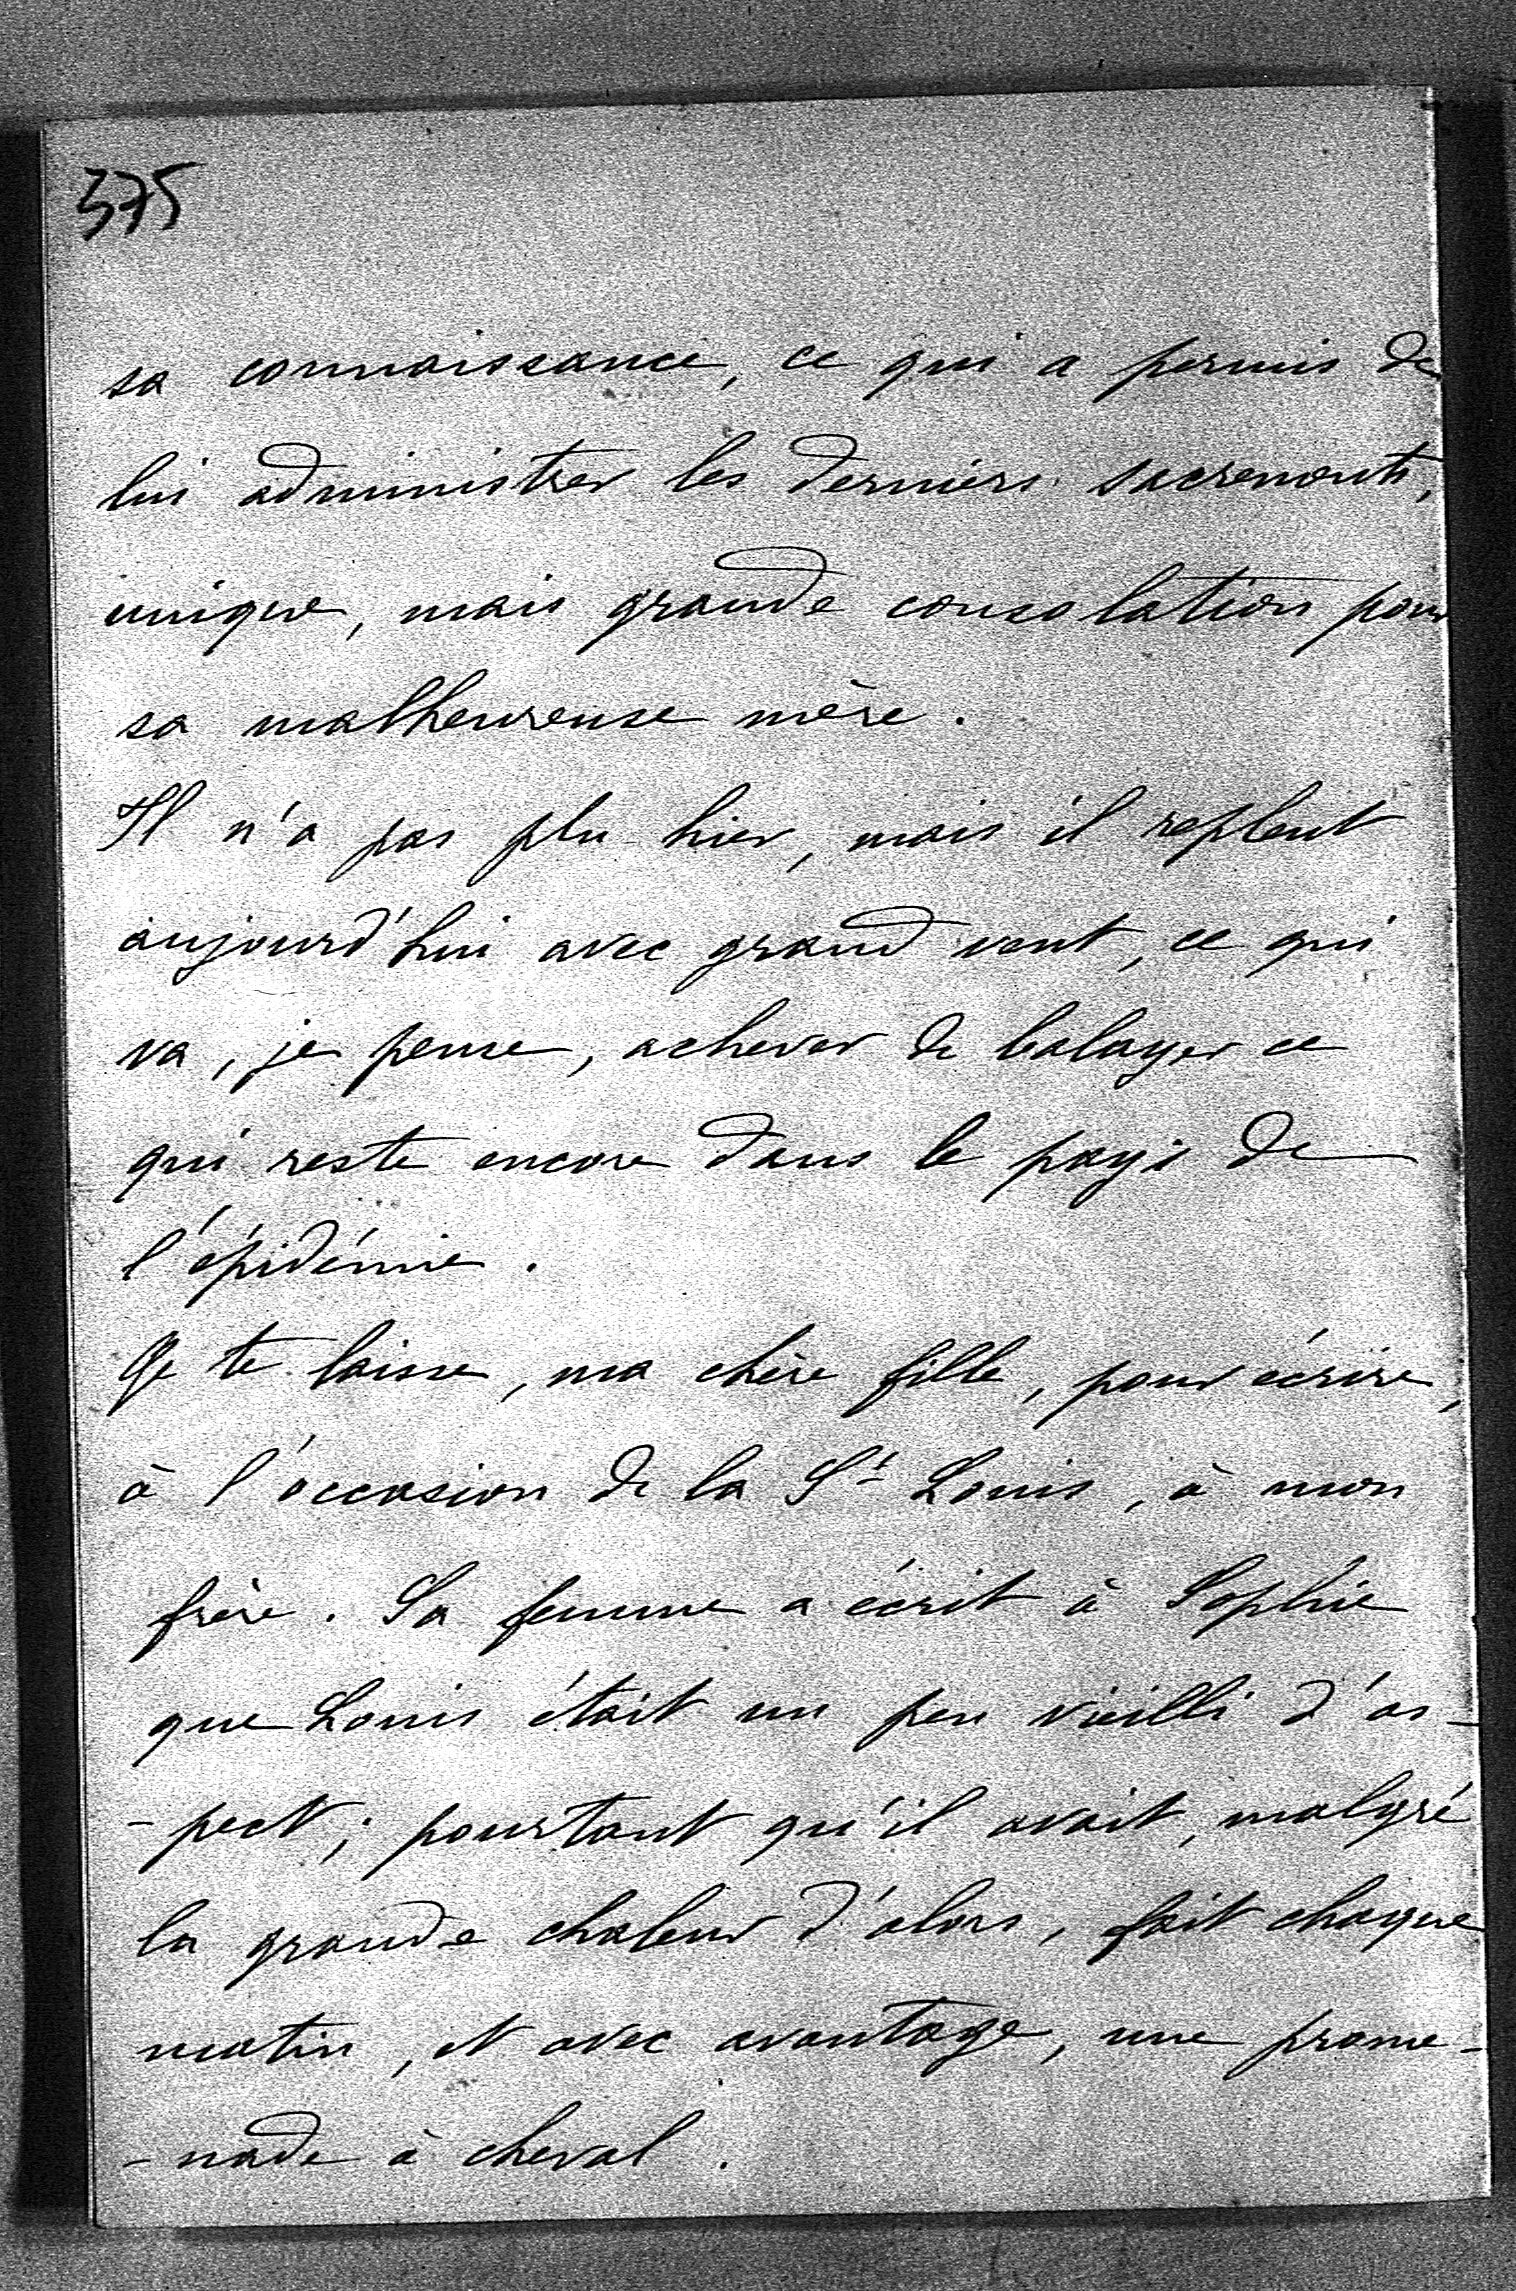 375
sa connaissance, ce qui a permis de
lui administrer les derniers sacrements,
unique, mais grande consolation pour
sa malheureuse mère.
Il n'a pas plu hier, mais il repleut
aujourd'hui avec grand vent, ce qui
va, je pense, achever de balayer ce
qui reste encore dans le pays de
l'épidémie.
Je te laisse, ma chère fille, pour écrire,
à l'occasion de la St Louis, à mon
frère. Sa femme a écrit à Sophie
que Louis était un peu vieilli d'as-
-pect; pourtant qu'il avait, malgré
la grande chaleur d'alors, fait chaque
matin, et avec avantage, une prome-
-nade à cheval.